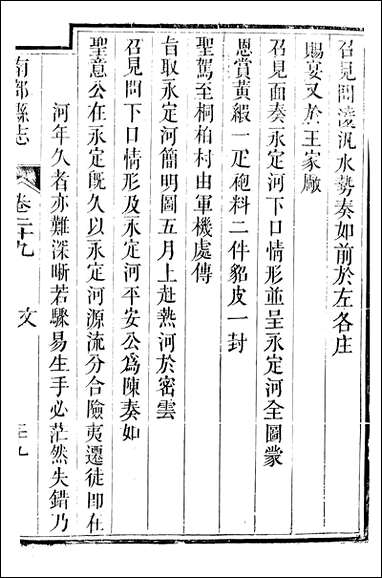 召見問淩汛水勢奏如前於左各庄
賜宴又於王家厰
召見面奏永定河下口情形並呈永定河全圖蒙
恩賞黃緞一疋袍料二件貂皮一封
聖駕至桐柏村由軍機處傳
旨取永定河簡明圖五月上赴熱河於密雲
召見問下口情形及永定河平安公爲陳奏如
聖意公在永定旣久以永定河源流分合險夷遷徙卽在
河年久者亦難深晰若驟易生手必茫然失錯乃
南部縣志
卷二十九
文
三九